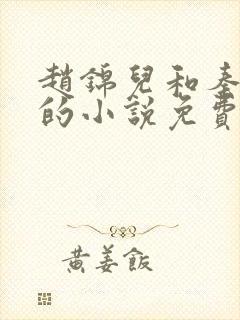 趙錦兒和秦
的小說免費
黃姜飯